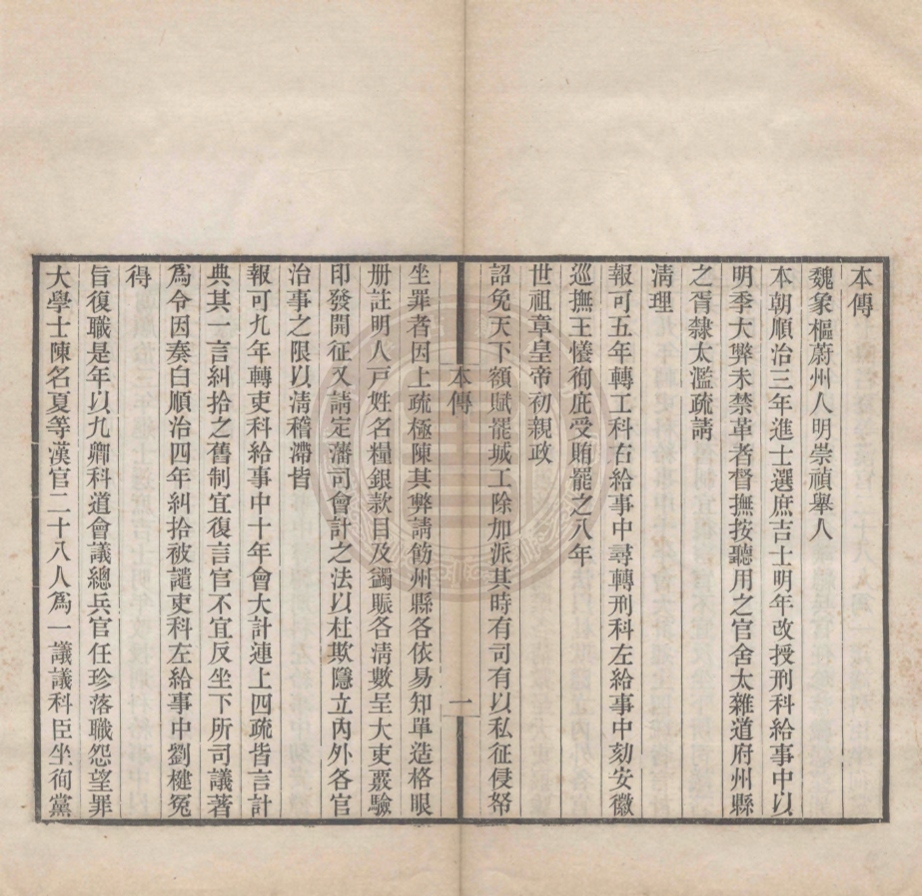 本傳
魏象樞蔚州人明崇禎舉人
本朝順治三年進士選庶吉士明年改授刑科給事中以
明季大弊未禁革者督撫按聽用之官舍太雜道府州縣
之胥隸太濫疏請
清理
報可五年轉工科右給事中尋轉刑科左給事中劾安徽
巡撫王懩徇庇受賄罷之八年
世祖章皇帝初親政
詔免天下額賦罷城工除加派其時有司有以私征侵帑
本傳
一
坐罪者因上疏極陳其弊請飭州縣各依易知單造格眼
册註明人戸姓名糧銀款目及蠲賑各淸數呈大吏覈驗
印發開征又請定藩司會計之法以杜欺隱立內外各官
治事之限以淸稽滯皆
報可九年轉吏科給事中十年會大計連上四疏皆言計
典其一言糾拾之舊制宜復言官不宜反坐下所司議著
爲令因奏白順治四年糾拾被譴吏科左給事中劉楗冤
得
旨復職是年以九卿科道會議總兵官任珍落職怨望罪
大學士陳名夏等漢官二十八人爲一議議科臣坐徇黨